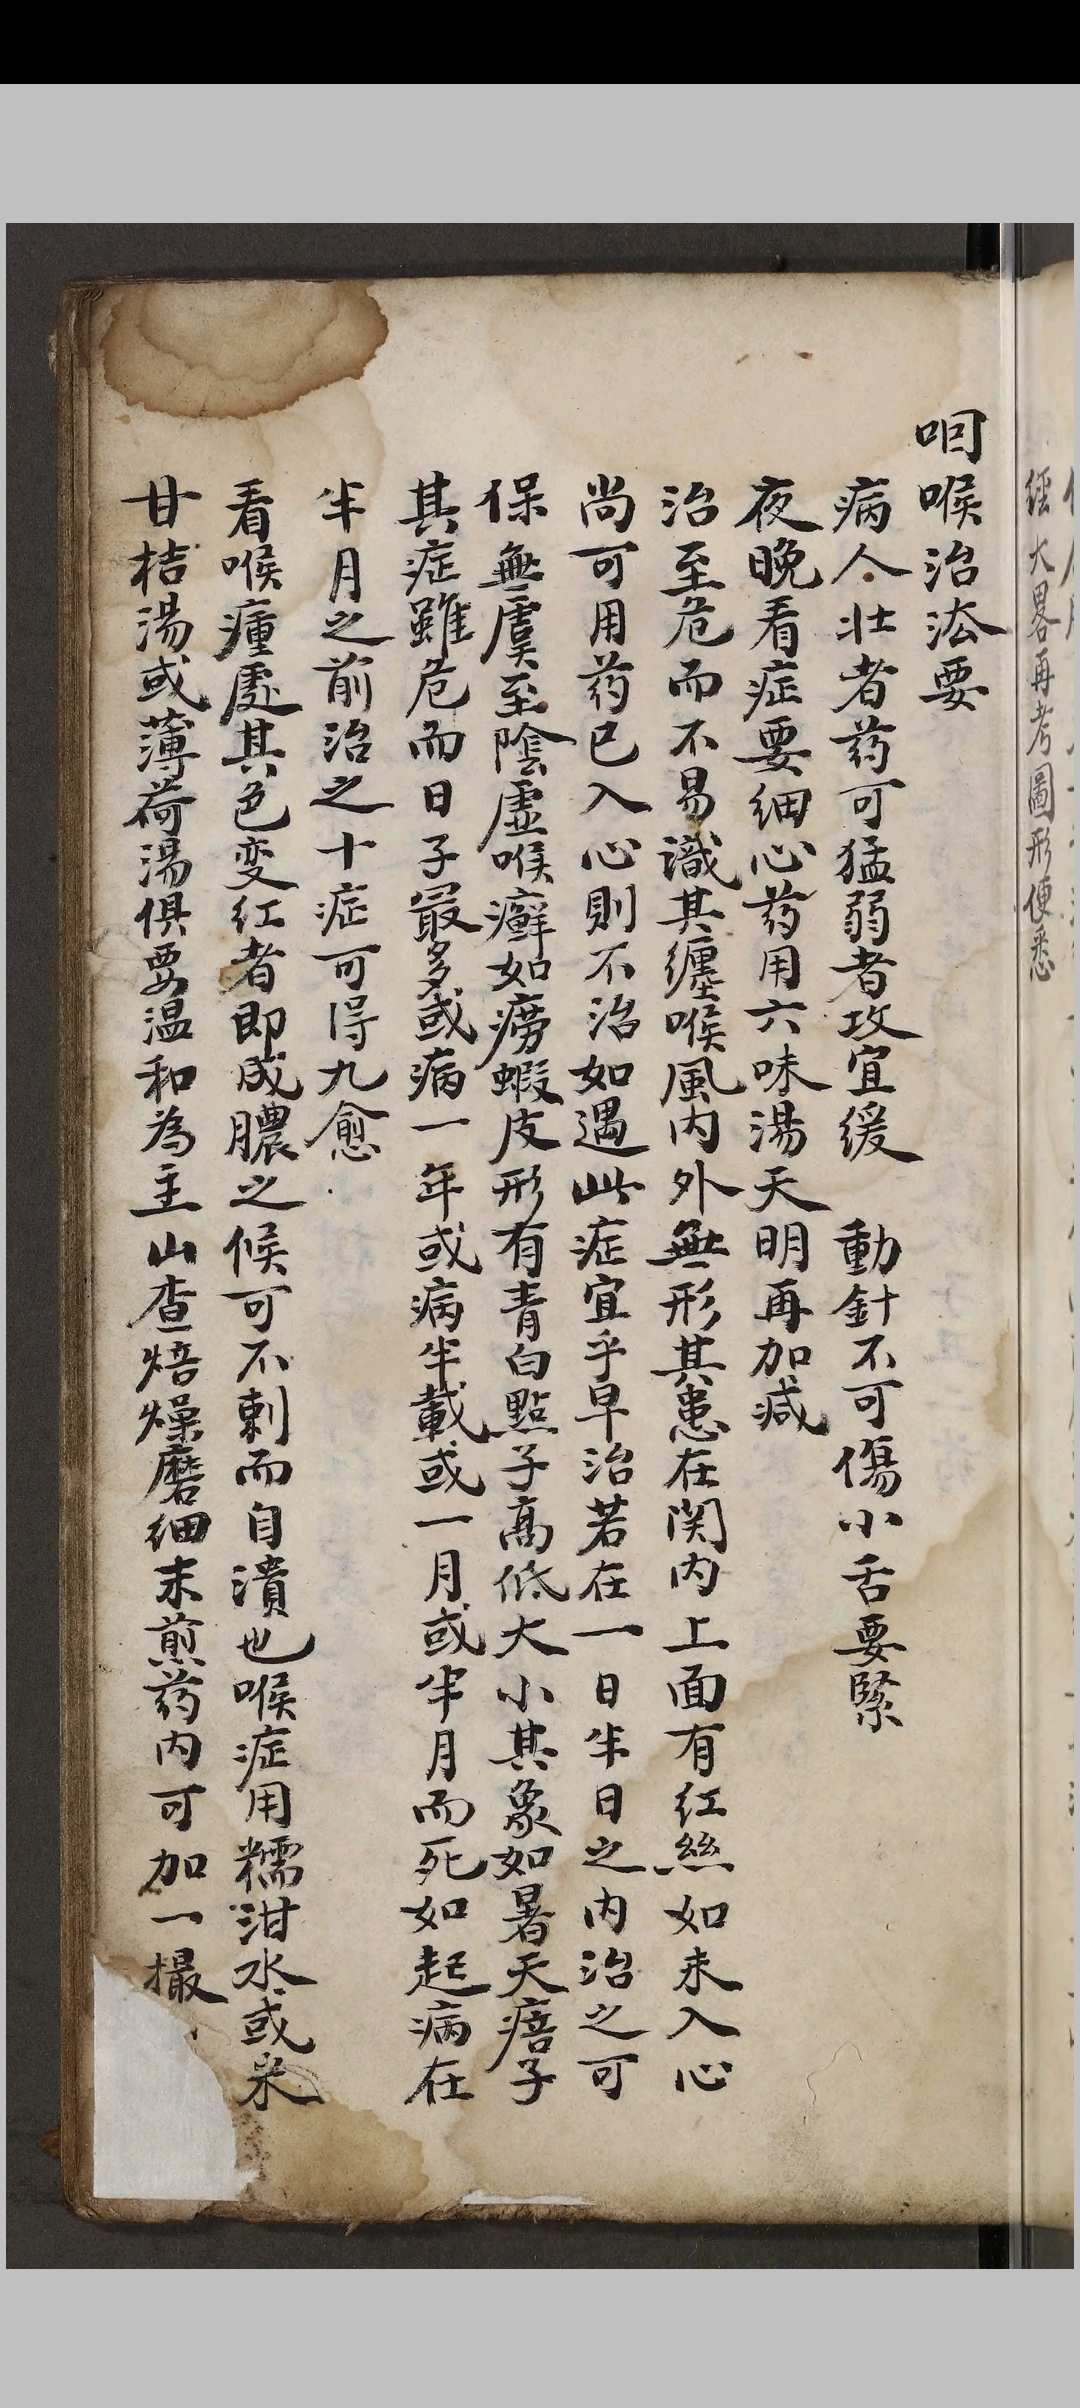 經大畧再考圖形便悉
咽喉治法要
病人壯者药可猛弱者攻宜緩　動針不可傷小舌要緊
夜晚看症要細心药用六味湯天明再加减
治至危而不易識其纏喉風内外無形其患在関内上面有红絲如未入心
尚可用药已入心則不治如遇此症宜乎早治若在一日半日之内治之可
保無虞至陰虛喉癬如痨蝦皮形有青白點子高低大小其象如暑天痦子
其症雖危而日子最多或病一年或病半載或一月或半月而死如起病在
半月之前治之十症可得九愈
看喉瘇處其色变红者即成膿之候可不刺而自潰也喉症用糯泔水或米
甘桔湯或薄荷湯俱要温和為主山查焙燥磨細末煎药内可加一撮